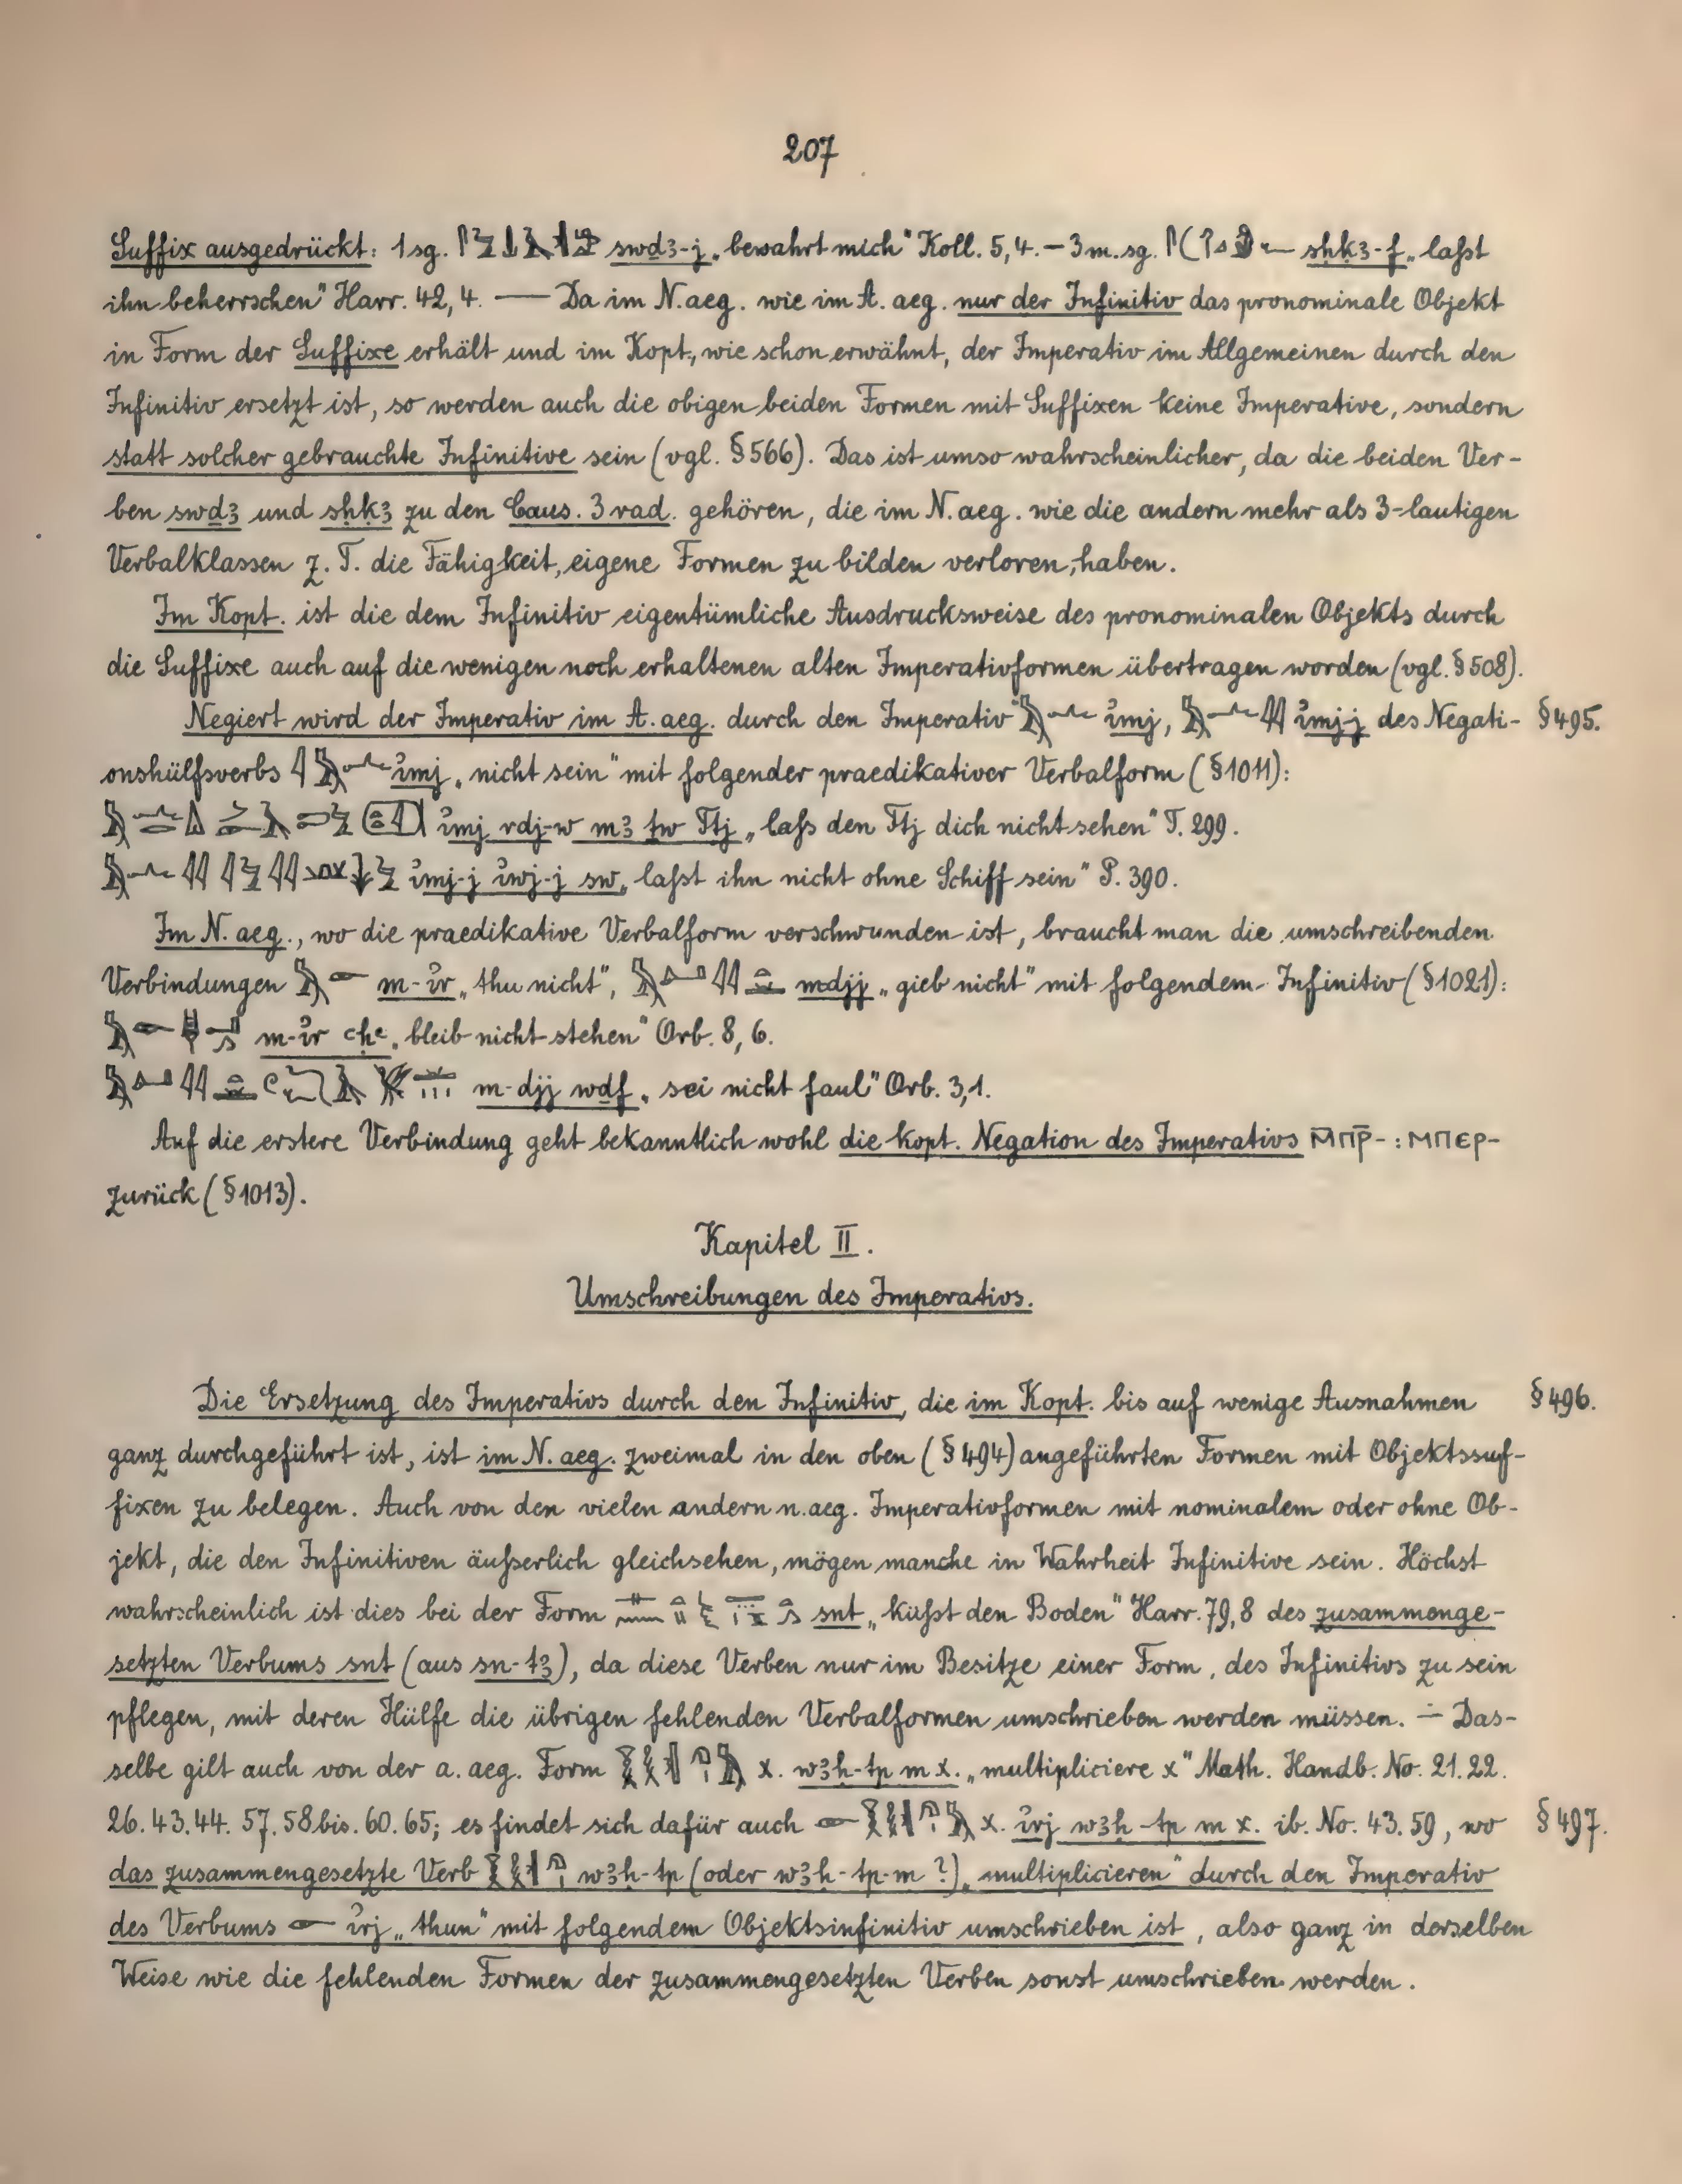 207
Suffix ausgedrückt: 1 sg. swḏꜣ-j „bewahrt mich“ Koll. 5,4. — 3 m. sg. sḥkꜣ-f „laßt
ihn beherrschen“ Harr. 42, 4. — Da im N. aeg. wie im A. aeg. nur der Infinitiv das pronominale Objekt
in Form der Suffixe erhält und im Kopt., wie schon erwähnt, der Imperativ im Allgemeinen durch den
Infinitiv ersetzt ist, so werden auch die obigen beiden Formen mit Suffixen keine Imperative, sondern
statt solcher gebrauchte Infinitive sein (vgl. § 566). Das ist umso wahrscheinlicher, da die beiden Ver-
ben swḏꜣ und sḥkꜣ zu den Caus. 3 rad. gehören, die im N. aeg. wie die andern mehr als 3-lautigen
Verbalklassen z. T. die Fähigkeit, eigene Formen zu bilden verloren, haben.
Im Kopt. ist die dem Infinitiv eigentümliche Ausdrucksweise des pronominalen Objekts durch
die Suffixe auch auf die wenigen noch erhaltenen alten Imperativformen übertragen worden (vgl. § 508).
Negiert wird der Imperativ im A. aeg. durch den Imperativ ỉmj, ỉmj-j des Negati- § 495.
onshülfsverbs ỉmj „nicht sein“ mit folgender praedikativer Verbalform (§ 1011):
ỉmj rdj-w mꜣ ṯw Ttj „laß den Ttj dich nicht sehen“ T. 299.
ỉmj-j ỉwj-j sw „laßt ihn nicht ohne Schiff sein“ P. 390.
Im N. aeg., wo die praedikative Verbalform verschwunden ist, braucht man die umschreibenden
Verbindungen m-ỉr „thu nicht“, mdjj „gieb nicht“ mit folgendem Infinitiv (§ 1021):
m-ỉr ꜥḥꜥ „bleib nicht stehen“ Orb. 8, 6.
m-djj wdf „sei nicht faul“ Orb. 3,1.
Auf die erstere Verbindung geht bekanntlich wohl die kopt. Negation des Imperativs ⲙ̅ⲡⲣ̅- : ⲙⲡⲉⲣ-
zurück (§ 1013).
Kapitel II.
Umschreibungen des Imperativs.
Die Ersetzung des Imperativs durch den Infinitiv, die im Kopt. bis auf wenige Ausnahmen § 496.
ganz durchgeführt ist, ist im N. aeg. zweimal in den oben (§ 494) angeführten Formen mit Objektssuf-
fixen zu belegen. Auch von den vielen andern n. aeg. Imperativformen mit nominalem oder ohne Ob-
jekt, die den Infinitiven äußerlich gleichsehen, mögen manche in Wahrheit Infinitive sein. Höchst
wahrscheinlich ist dies bei der Form snt „küßt den Boden“ Harr. 79, 8 des zusammenge-
setzten Verbums snt (aus sn-tꜣ), da diese Verben nur im Besitze einer Form, des Infinitivs zu sein
pflegen, mit deren Hülfe die übrigen fehlenden Verbalformen umschrieben werden müssen. — Das-
selbe gilt auch von der a. aeg. Form x. wꜣḥ-tp m x. „multipliciere x“ Math. Handb. No. 21. 22.
26. 43. 44. 57. 58 bis. 60. 65; es findet sich dafür auch x. ỉrj wꜣḥ-tp m x. ib. No. 43. 59, wo § 497.
das zusammengesetzte Verb wꜣḥ-tp (oder wꜣḥ-tp-m ?) „multiplicieren“ durch den Imperativ
des Verbums ỉrj „thun“ mit folgendem Objektsinfinitiv umschrieben ist, also ganz in derselben
Weise wie die fehlenden Formen der zusammengesetzten Verben sonst umschrieben werden.